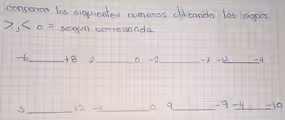 compara los siguientes numeros utilizando los signos
>, < o = segun corresponda
-6____+8 2____0 -2____-7 -8____-4
3____12 -5____0 9____-9 -4____-10